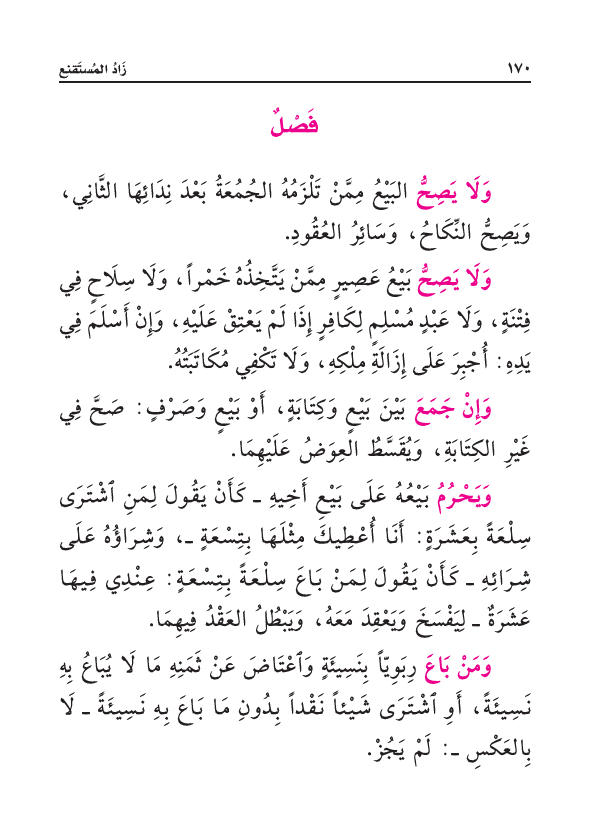 ١٧٠ زَادُ المُستَقنِع
فَصْلٌ
وَلَا يَصِحُّ البَيْعُ مِمَّنْ تَلْزَمُهُ الجُمُعَةُ بَعْدَ نِدَائِهَا الثَّانِي،
وَيَصِحُّ النِّكَاحُ، وَسَائِرُ العُقُودِ.
وَلَا يَصِحُّ بَيْعُ عَصِيرٍ مِمَّنْ يَتَّخِذُهُ خَمْراً، وَلَا سِلَاحٍ فِي
فِتْنَةٍ، وَلَا عَبْدٍ مُسْلِمٍ لِكَافِرٍ إِذَا لَمْ يَعْتِقْ عَلَيْهِ، وَإِنْ أَسْلَمَ فِي
يَدِهِ: أُجْبِرَ عَلَى إِزَالَةِ مِلْكِهِ، وَلَا تَكْفِي مُكَاتَبَتُهُ.
وَإِنْ جَمَعَ بَيْنَ بَيْعٍ وَكِتَابَةٍ، أَوْ بَيْعٍ وَصَرْفٍ: صَحَّ فِي
غَيْرِ الكِتَابَةِ، وَيُقَسَّطُ العِوَضُ عَلَيْهِمَا.
وَيَحْرُمُ بَيْعُهُ عَلَى بَيْعِ أَخِيهِ ـ كَأَنْ يَقُولَ لِمَنِ ٱشْتَرَى
سِلْعَةً بِعَشَرَةٍ: أَنَا أُعْطِيكَ مِثْلَهَا بِتِسْعَةٍ ـ، وَشِرَاؤُهُ عَلَى
شِرَائِهِ ـ كَأَنْ يَقُولَ لِمَنْ بَاعَ سِلْعَةً بِتِسْعَةٍ: عِنْدِي فِيهَا
عَشَرَةٌ ـ لِيَفْسَخَ وَيَعْقِدَ مَعَهُ، وَيَبْطُلُ العَقْدُ فِيهِمَا.
وَمَنْ بَاعَ رِبَوِيّاً بِنَسِيئَةٍ وَٱعْتَاضَ عَنْ ثَمَنِهِ مَا لَا يُبَاعُ بِهِ
نَسِيئَةً، أَوِ ٱشْتَرَى شَيْئاً نَقْداً بِدُونِ مَا بَاعَ بِهِ نَسِيئَةً ـ لَا
بِالعَكْسِ ـ: لَمْ يَجُزْ.